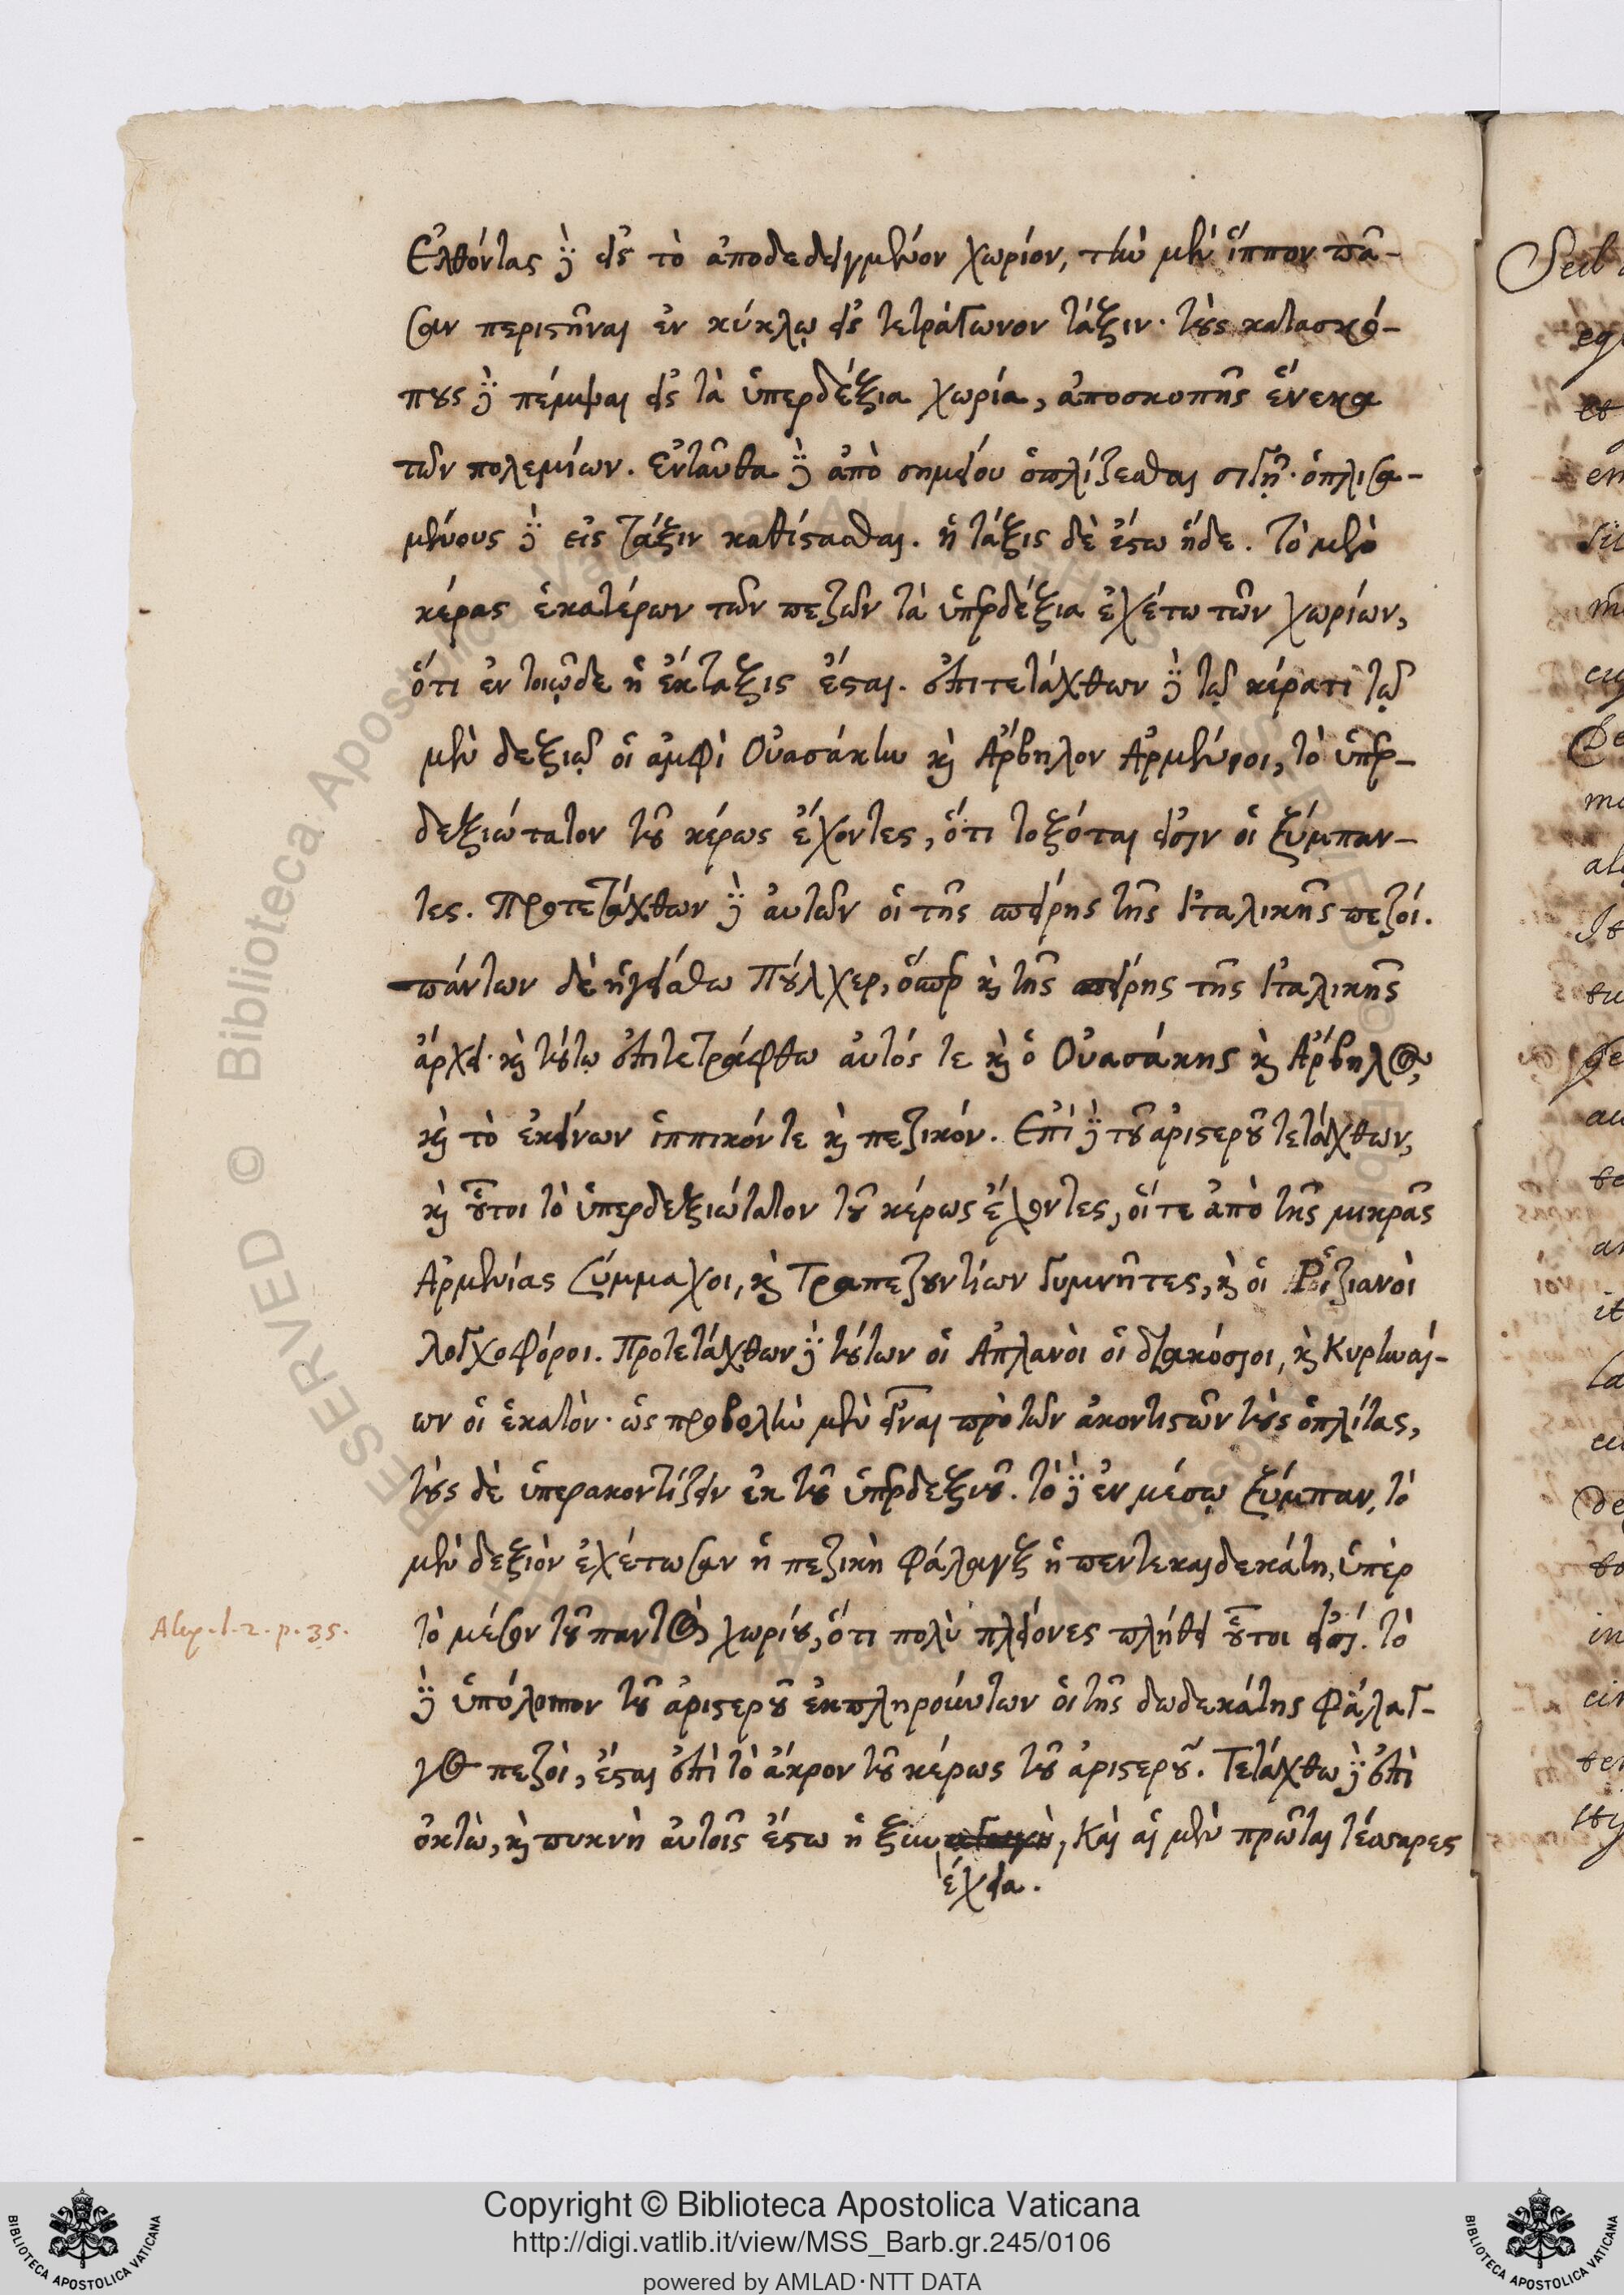 Ἐλθόντας δὲ εἰς τὸ ἀποδεδειγμένον χωρίον, τὴν μὲν ἵππον πᾶ-
σαν περιστῆναι ἐν κύκλῳ εἰς τετράγωνον τάξιν· τοὺς κατασκό-
πους δὲ πέμψαι εἰς τὰ ὑπερδέξια χωρία, ἀποσκοπῆς ἕνεκα
τῶν πολεμίων. Ἐνταῦθα δὲ ἀπὸ σημείου ὁπλίζεσθαι σιγῇ· ὁπλισα-
μένους δὲ εἰς τάξιν καθίστασθαι. ἡ τάξις δὲ ἔστω ἥδε. Τὸ μὲν
κέρας ἑκατέρων τῶν πεζῶν τὰ ὑπερδέξια ἐχέτω τῶν χωρίων,
ὅτι ἐν τοιῷδε ἡ ἔκταξις ἔσται. ἐπιτετάχθων δὲ τῷ κέρατι τῷ
μὲν δεξιῷ οἱ ἀμφὶ Οὐασάκην καὶ Ἄρβηλον Ἀρμένιοι, τὸ ὑπερ-
δεξιώτατον τοῦ κέρως ἔχοντες, ὅτι τοξόται εἰσὶν οἱ ξύμπαν-
τες. Προτετάχθων δὲ αὐτῶν οἱ τῆς σπείρης τῆς Ἰταλικῆς πεζοί.
πάντων δὲ ἡγείσθω Πούλχερ, ὅσπερ καὶ τῆς σπείρης τῆς Ἰταλικῆς
ἄρχει· καὶ τούτῳ ἐπιτετράφθω αὐτός τε καὶ ὁ Οὐασάκης καὶ Ἄρβηλος,
καὶ τὸ ἐκείνων ἱππικόν τε καὶ πεζικόν. Ἐπὶ δὲ τοῦ ἀριστεροῦ τετάχθων,
καὶ οὗτοι τὸ ὑπερδεξιώτατον τοῦ κέρως ἔχοντες, οἵ τε ἀπὸ τῆς μικρᾶς
Ἀρμενίας ξύμμαχοι, καὶ Τραπεζουντίων γυμνῆτες, καὶ οἱ Ῥιζιανοὶ
λογχοφόροι. Προτετάχθων δὲ τούτων οἱ Ἀπλανοὶ οἱ διακόσιοι, καὶ Κυρηναί-
ων οἱ ἑκατὸν· ὡς προβολὴν μὲν εἶναι πρὸ τῶν ἀκοντιστῶν τοὺς ὁπλίτας,
τοὺς δὲ ὑπερακοντίζειν ἐκ τοῦ ὑπερδεξιοῦ. τὸ δὲ ἐν μέσῳ ξύμπαν, τὸ
μὲν δεξιὸν ἐχέτωσαν ἡ πεζικὴ φάλαγξ ἡ πεντεκαιδεκάτη, ὑπὲρ
τὸ μέσον τοῦ παντὸς χωρίου, ὅτι πολὺ πλείονες πλήθει οὗτοι εἰσί. τὸ
δὲ ὑπόλοιπον τοῦ ἀριστεροῦ ἐκπληρούντων οἱ τῆς δωδεκάτης φάλαγ-
γος πεζοὶ, ἔσται ἐπὶ τὸ ἄκρον τοῦ κέρως τοῦ ἀριστεροῦ. Τετάχθω δὲ ἐπὶ
ὀκτὼ, καὶ πυκνὴ αὐτοῖς ἔστω ἡ ξυν, Καὶ αἱ μὲν πρῶται τέσσαρες
έχεια.
Alex. l. 2. p. 35.
Copyright © Biblioteca Apostolica Vaticana
http://digi.vatlib.it/view/MSS_Barb.gr.245/0106
powered by AMLAD·NTT DATA